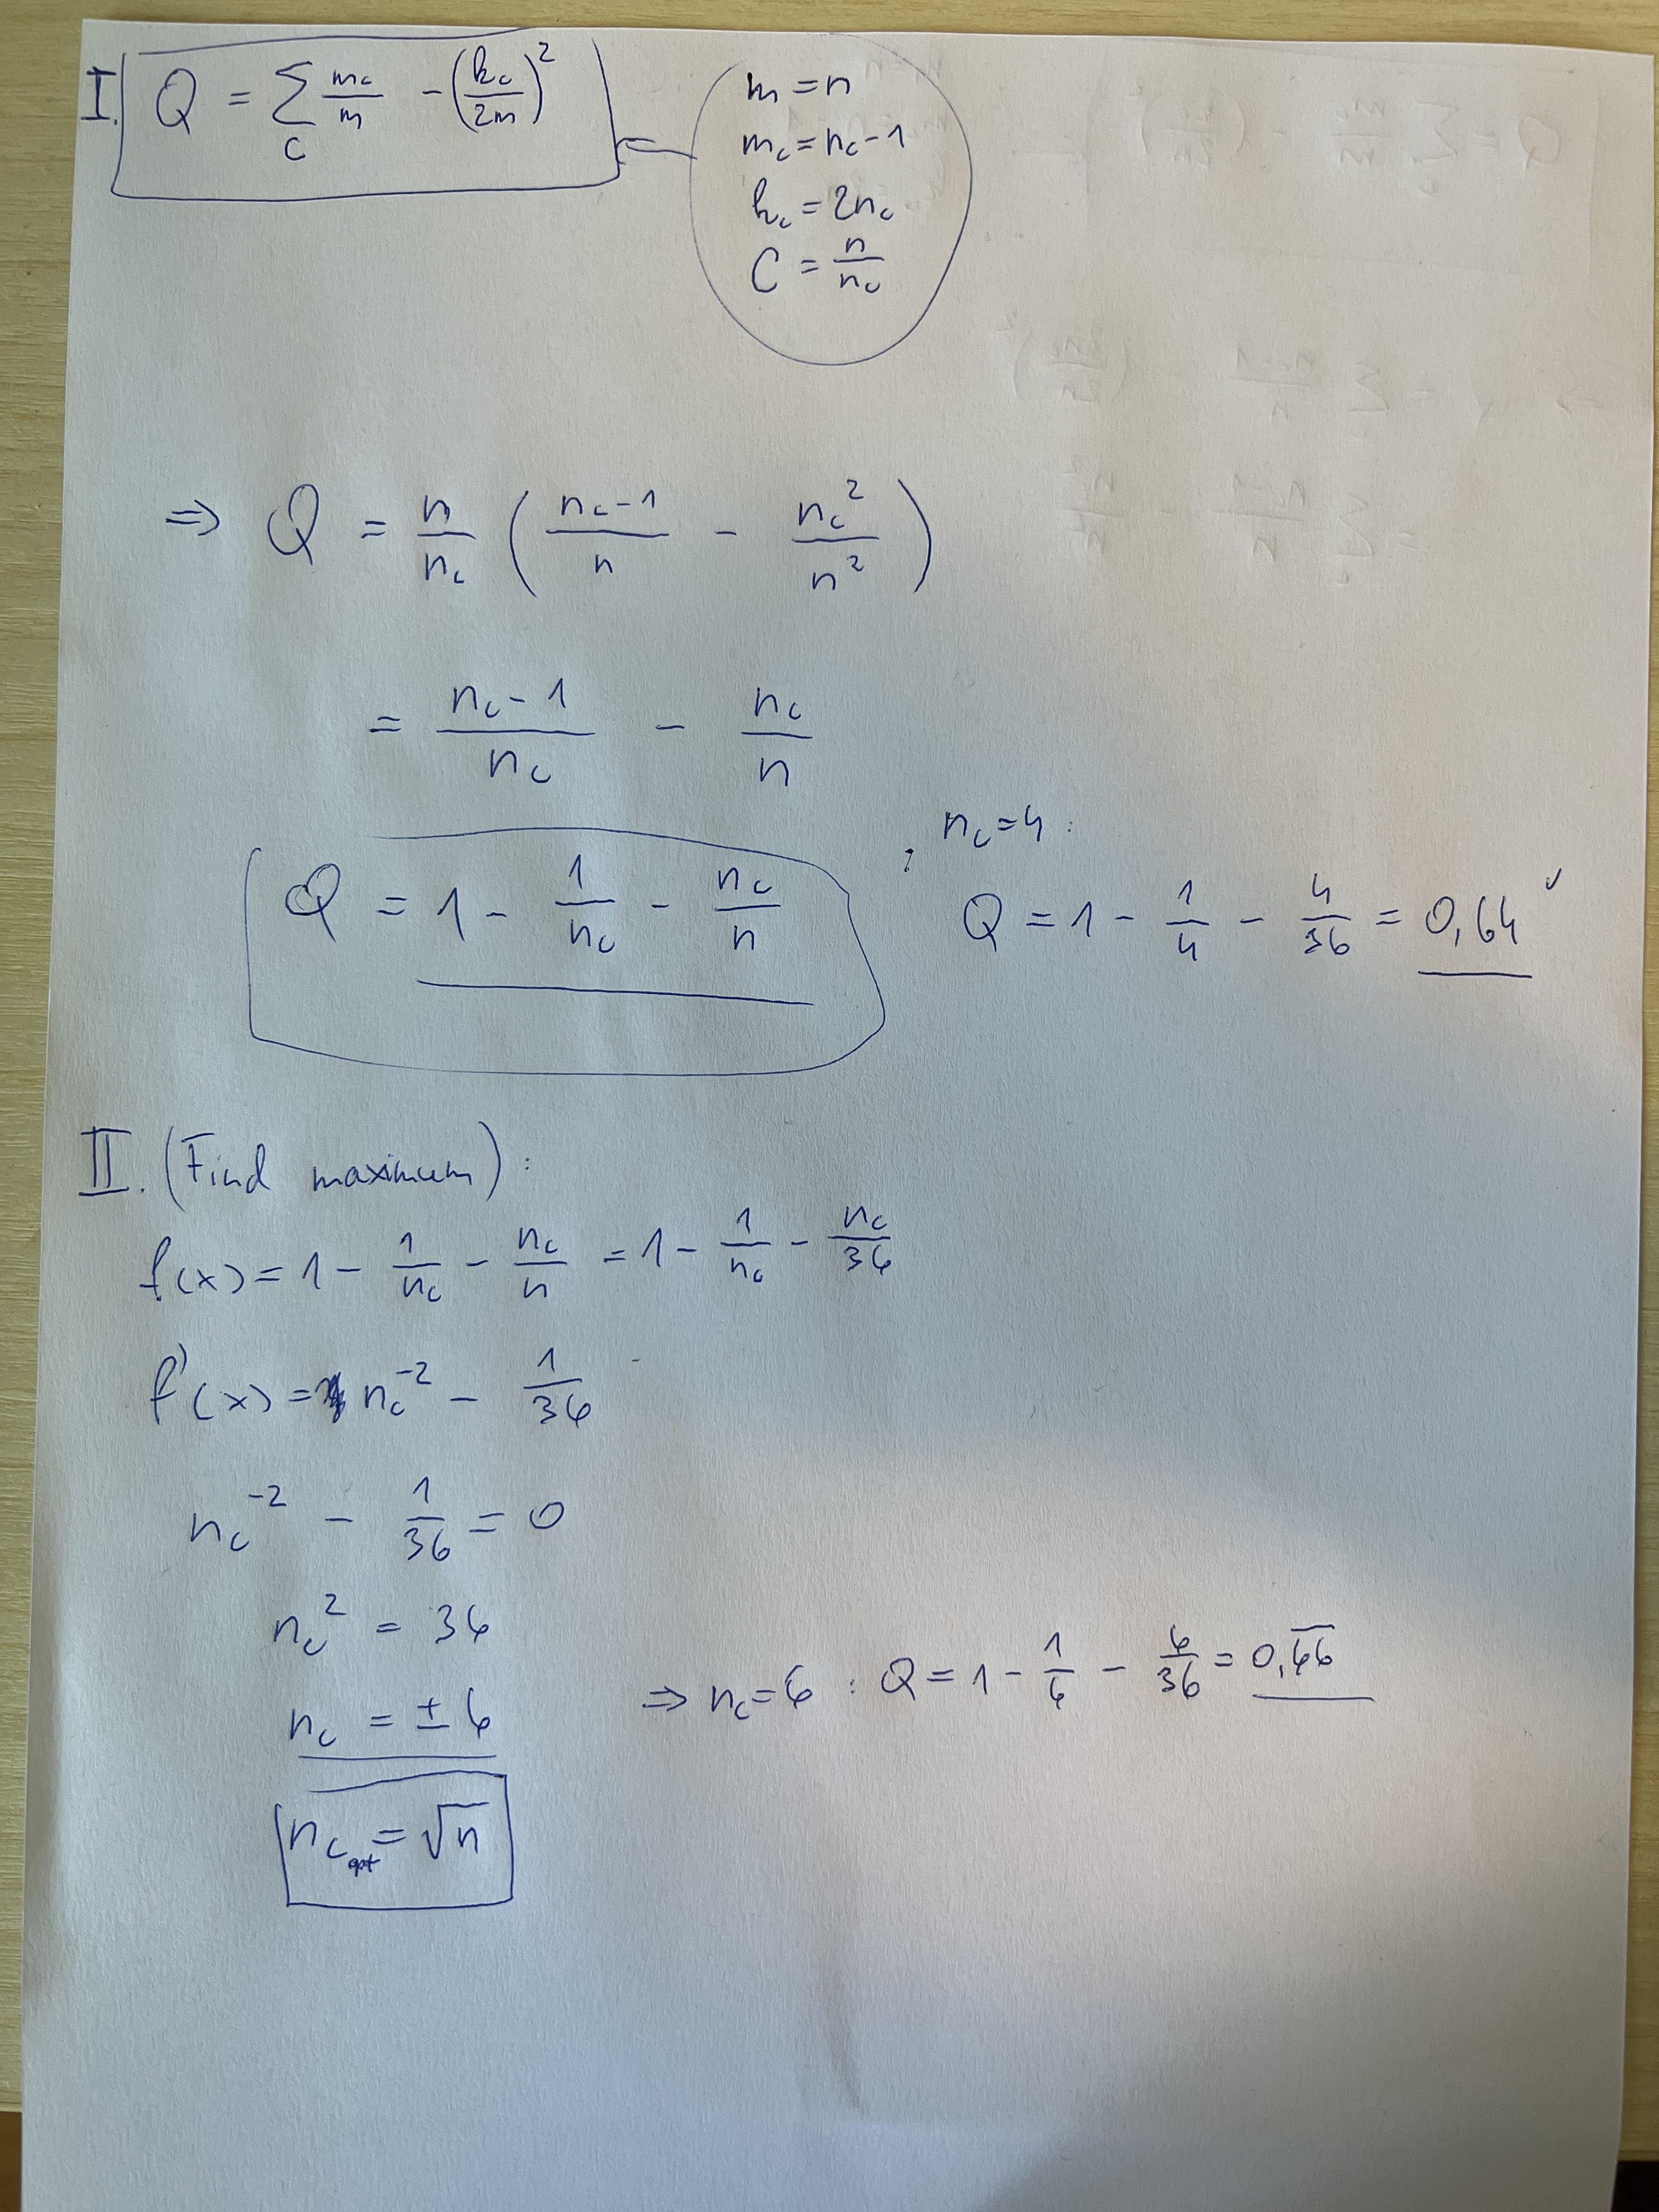 I. Q = ∑_C m_c/m - (k_c/2m)²
m = n
m_c = n_c - 1
k_c = 2n_c
C = n/n_c
⇒ Q = n/n_c ( (n_c - 1)/n - n_c²/n² )
= (n_c - 1)/n_c - n_c/n
Q = 1 - 1/n_c - n_c/n
, n_c = 4 :
Q = 1 - 1/4 - 4/36 = 0,64 ✓
II. (Find maximum) :
f(x) = 1 - 1/n_c - n_c/n = 1 - 1/n_c - n_c/36
f'(x) = n_c⁻² - 1/36
n_c⁻² - 1/36 = 0
n_c² = 36
n_c = ± 6
⇒ n_c = 6 : Q = 1 - 1/6 - 6/36 = 0,6̅6̅
n_c_opt = √n